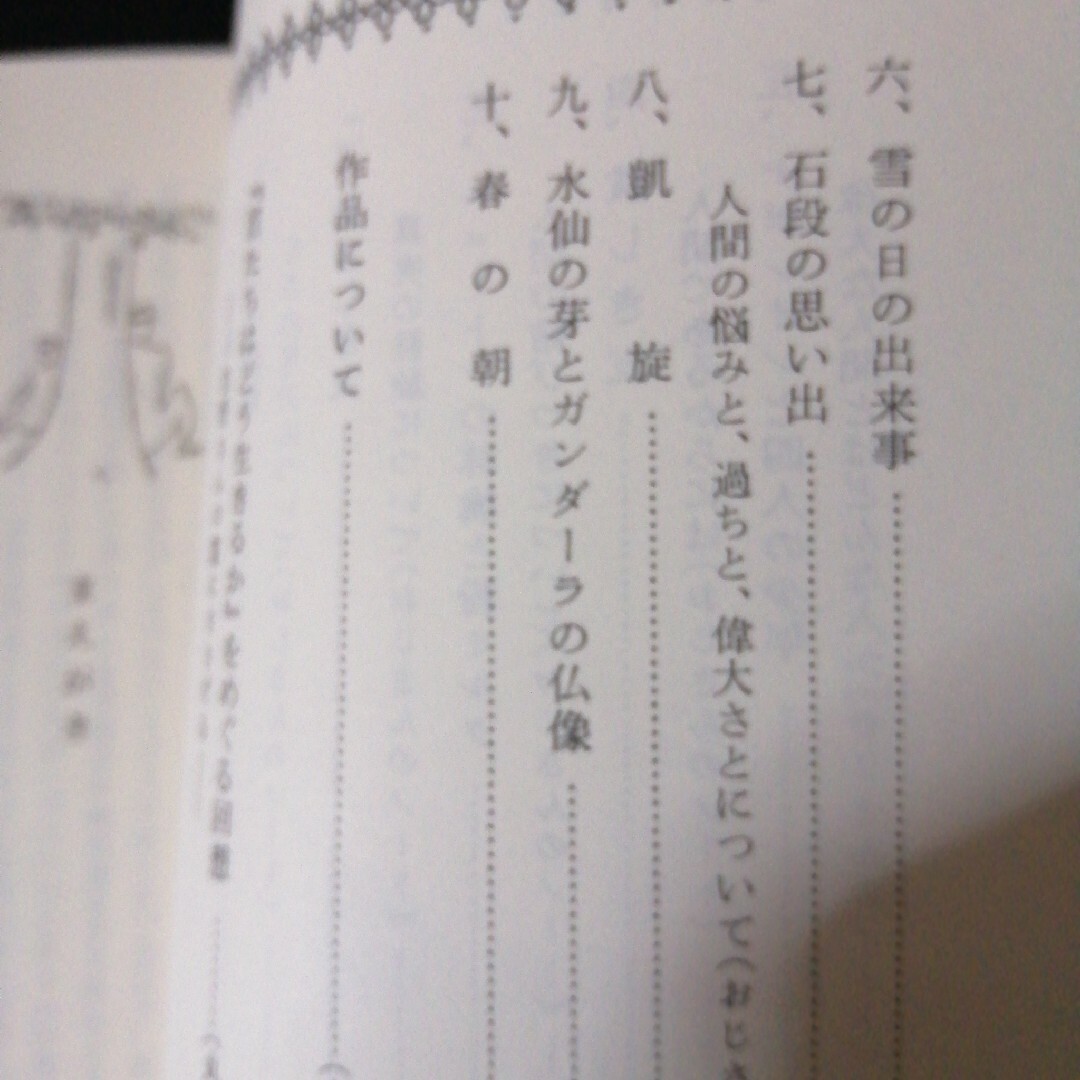 六、雪の日の出来事
七、石段の思い出
人間の悩みと、過ちと、偉大さとについて(おじさ
八、凱旋
九、水仙の芽とガンダーラの仏像
十、春の朝
作品について
『君たちはどう生きるか』をめぐる回想